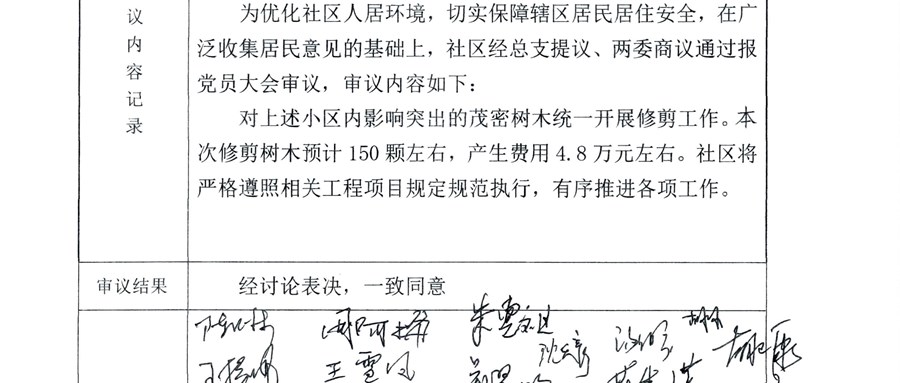 议内容记录
为优化社区人居环境，切实保障辖区居民居住安全，在广
泛收集居民意见的基础上，社区经总支提议、两委商议通过报
党员大会审议，审议内容如下：
对上述小区内影响突出的茂密树木统一开展修剪工作。本
次修剪树木预计 150 颗左右，产生费用 4.8 万元左右。社区将
严格遵照相关工程项目规定规范执行，有序推进各项工作。
审议结果
经讨论表决，一致同意
王雪